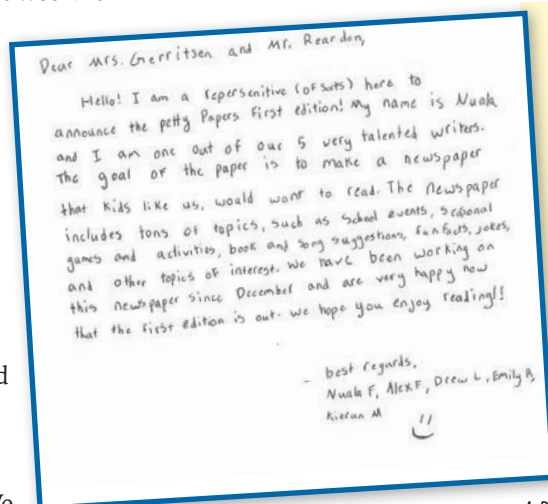 Dear Mrs. Gerritsen and Mr. Reardon,
Hello! I am a repersenitive (of sorts) here to
announce the petty Papers First edition! My name is Nuala
and I am one out of our 5 very talented writers.
The goal of the paper is to make a newspaper
that kids like us, would want to read. The newspaper
includes tons of topics, such as school events, seasonal
games and activities, book and song suggestions, fun facts, jokes,
and other topics of interest. We have been working on
this newspaper since December and are very happy now
that the first edition is out. we hope you enjoy reading!!
- best regards,
Nuala F, Alex F, Drew L, Emily R,
Kieran M